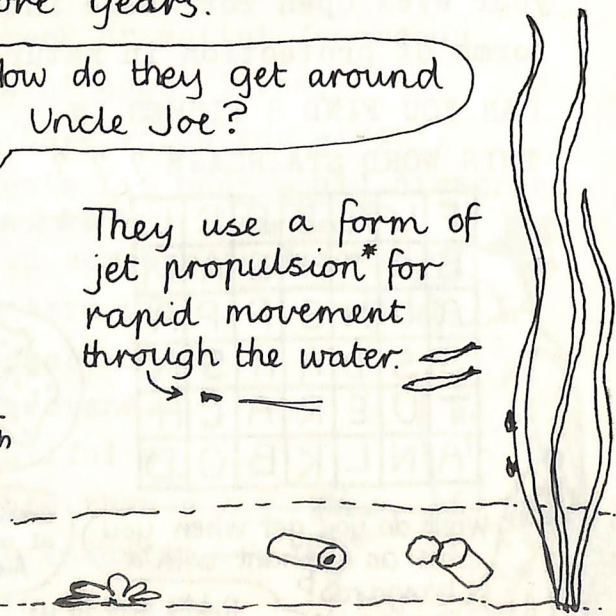 ore years.
How do they get around
Uncle Joe?
They use a form of
jet propulsion* for
rapid movement
through the water.